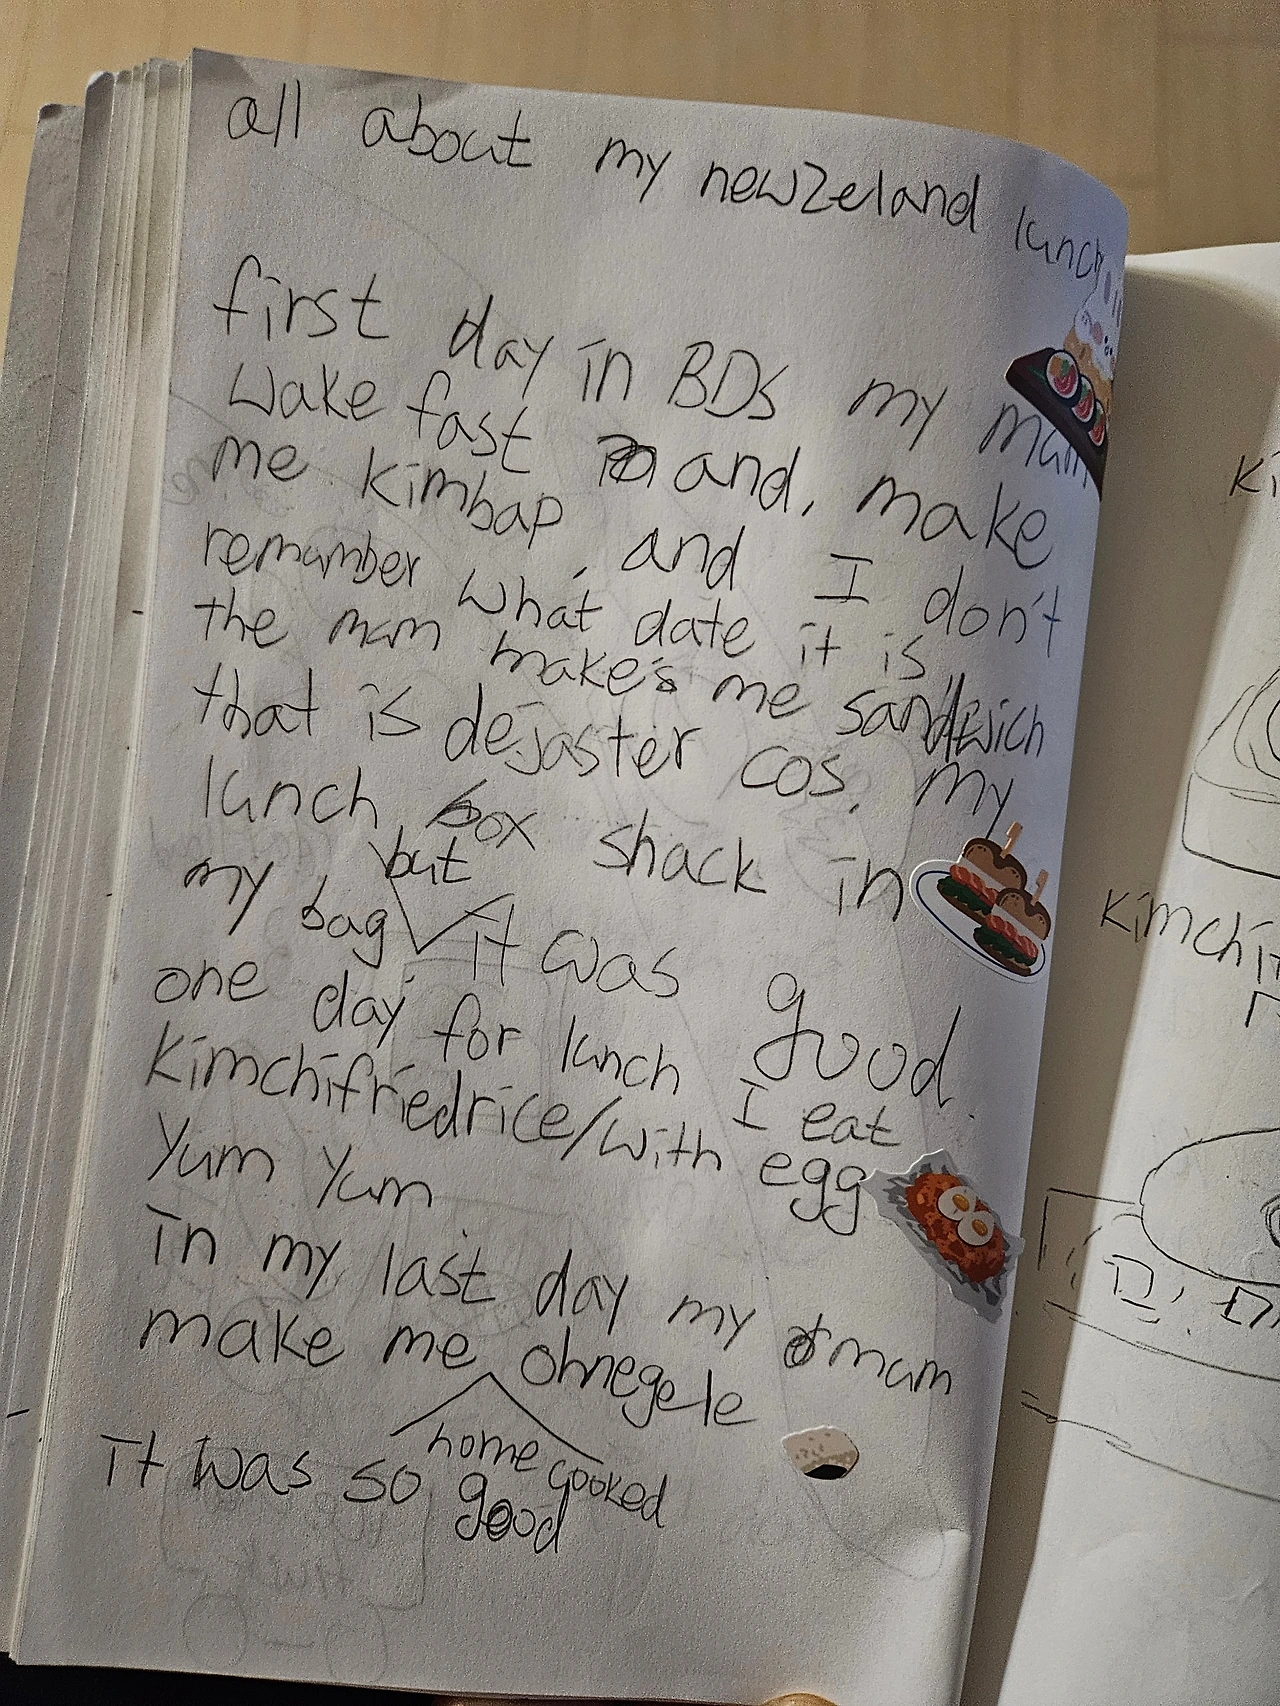 all about my newzeland lunch
first day in BDS my mam
wake fast and, make
me kimbap, and I don't
remamber what date it is
the mam make's me sandwich
that is dejaster cos, my
lunch box shack in
my bag but it was good.
one day for lunch I eat
kimchifriedrice/with egg
Yum Yum
in my last day my mam
make me home cooked ohnegele
it was so good
Ki
Kimchi